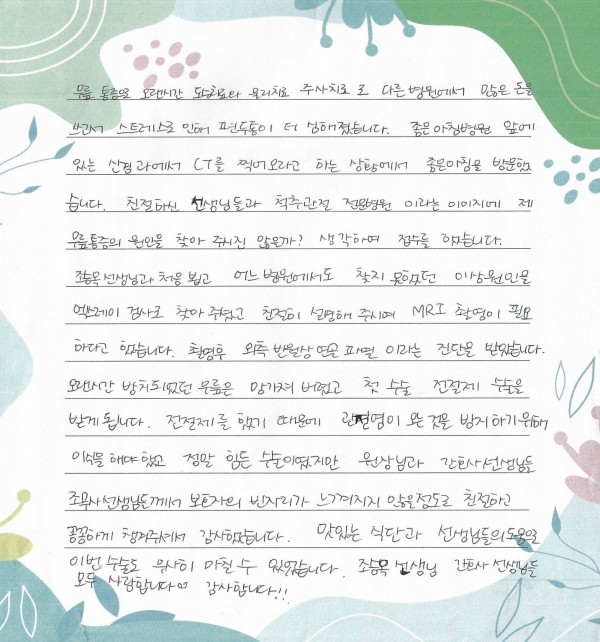 무릎 통증을 오랜시간 도수치료와 물리치료 주사치료로 다른병원에서 많은 돈을
쓰고서 스트레스로 인해 편두통이 더 심해졌습니다. 좋은아침병원 앞에
있는 신경과에서 CT를 찍어오라고 하는 상황에서 좋은아침을 방문했
습니다. 친절하신 선생님들과 척추관절 전문병원 이라는 이미지에 제
무릎통증의 원인을 찾아 주시진 않을까? 생각하여 접수를 했습니다.
조승목 선생님과 처음 뵙고 어느병원에서도 찾지 못했던 이상원인을
엑스레이 검사로 찾아 주셨고 친절히 설명해 주시며 MRI 촬영이 필요
하다고 했습니다. 촬영후 외측 반월상 연골 파열 이라는 진단을 받았습니다.
오랜시간 방치되었던 무릎은 망가져 버렸고 첫 수술 전절제 수술을
받게됩니다. 전절제를 했기 때문에 관절염이 오는 것을 방지하기위해
이식을 해야 했고 정말 힘든 수술이였지만 원장님과 간호사선생님들
조무사선생님들께서 보호자의 빈자리가 느껴지지 않을정도로 친절하고
꼼꼼하게 챙겨주셔서 감사했습니다. 맛있는 식단과 선생님들의도움을
이번 수술도 무사히 마칠 수 있었습니다. 조승목 선생님 간호사 선생님들
모두 사랑합니다♡ 감사합니다!!